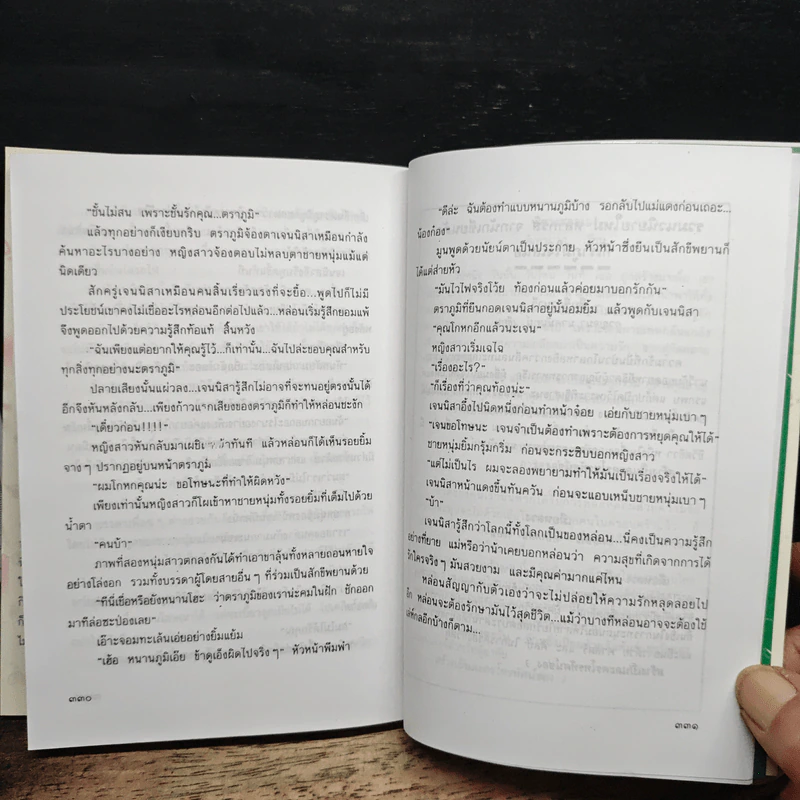 "ชั้นไม่สน เพราะชั้นรักคุณ...ตราภูมิ"
แล้วทุกอย่างก็เงียบกริบ ตราภูมิจ้องตาเจนนิสาเหมือนกำลัง
ค้นหาอะไรบางอย่าง หญิงสาวจ้องตอบไม่หลบตาชายหนุ่มแม้แต่
นิดเดียว
สักครู่เจนนิสาเหมือนคนสิ้นเรี่ยวแรงที่จะยื้อ...พูดไปก็ไม่มี
ประโยชน์เขาคงไม่เชื่ออะไรหล่อนอีกต่อไปแล้ว...หล่อนเริ่มรู้สึกยอมแพ้
จึงพูดออกไปด้วยความรู้สึกท้อแท้ สิ้นหวัง
"ฉันเพียงแต่อยากให้คุณรู้ไว้...ก็เท่านั้น...ฉันไปล่ะขอบคุณสำหรับ
ทุกสิ่งทุกอย่างนะตราภูมิ"
ปลายเสียงนั้นแผ่วลง...เจนนิสารู้สึกไม่อาจที่จะทนอยู่ตรงนั้นได้
อีกจึงหันหลังกลับ...เพียงก้าวแรกเสียงของตราภูมิก็ทำให้หล่อนชะงัก
"เดี๋ยวก่อน!!!!"
หญิงสาวหันกลับมาเผชิญหน้าทันที แล้วหล่อนก็ได้เห็นรอยยิ้ม
จางๆ ปรากฏอยู่บนหน้าตราภูมิ
"ผมโกหกคุณน่ะ ขอโทษนะที่ทำให้ผิดหวัง"
เพียงเท่านั้นหญิงสาวก็โผเข้าหาชายหนุ่มทั้งรอยยิ้มที่เต็มไปด้วย
น้ำตา
"คนบ้า"
ภาพที่สองหนุ่มสาวตกลงกันได้ทำเอาขาลุ้นทั้งหลายถอนหายใจ
อย่างโล่งอก รวมทั้งบรรดาผู้โดยสายอื่นๆ ที่ร่วมเป็นสักขีพยานด้วย
"ทีนี่เชื่อหรือยังหนานโฮะ ว่าตราภูมิของเราน่ะคมในฝัก ชักออก
มาทีล่อซะป่องเลย"
เอ๊าะจอมทะเล้นเอ่ยอย่างยิ้มแย้ม
"เฮ้อ หนานภูมิเอ๊ย ข้าดูเอ็งผิดไปจริงๆ" หัวหน้าพึมพำ
๓๓๐
"ดีล่ะ ฉันต้องทำแบบหนานภูมิบ้าง รอกลับไปแม่แตงก่อนเถอะ...
น้องก๋อง"
มูนพูดด้วยนัยน์ตาเป็นประกาย หัวหน้าซึ่งยืนเป็นสักขีพยานก็
ได้แต่ส่ายหัว
"มันไวไฟจริงโว้ย ท้องก่อนแล้วค่อยมาบอกรักกัน"
ตราภูมิที่ยืนกอดเจนนิสาอยู่นั้นอมยิ้ม แล้วพูดกับเจนนิสา
"คุณโกหกอีกแล้วนะเจน"
หญิงสาวเริ่มเฉไฉ
"เรื่องอะไร?"
"ก็เรื่องที่ว่าคุณท้องน่ะ"
เจนนิสาอึ้งไปนิดหนึ่งก่อนทำหน้าจ๋อย เอ่ยกับชายหนุ่มเบาๆ
"เจนขอโทษนะ เจนจำเป็นต้องทำเพราะต้องการหยุดคุณให้ได้"
ชายหนุ่มยิ้มกรุ้มกริ่ม ก่อนจะกระซิบบอกหญิงสาว
"แต่ไม่เป็นไร ผมจะลองพยายามทำให้มันเป็นเรื่องจริงให้ได้"
เจนนิสาหน้าแดงขึ้นทันควัน ก่อนจะแอบเหน็บชายหนุ่มเบาๆ
"บ้า"
เจนนิสารู้สึกว่าโลกนี้ทั้งโลกเป็นของหล่อน...นี่คงเป็นความรู้สึก
อย่างที่ยาย แม่หรือว่าน้าเคยบอกหล่อนว่า ความสุขที่เกิดจากการได้
รักใครจริงๆ มันสวยงาม และมีคุณค่ามากแค่ไหน
หล่อนสัญญากับตัวเองว่าจะไม่ปล่อยให้ความรักหลุดลอยไป
อีก หล่อนจะต้องรักษามันไว้สุดชีวิต...แม้ว่าบางทีหล่อนอาจจะต้องใช้
เล่ห์กลอีกบ้างก็ตาม...
๓๓๑